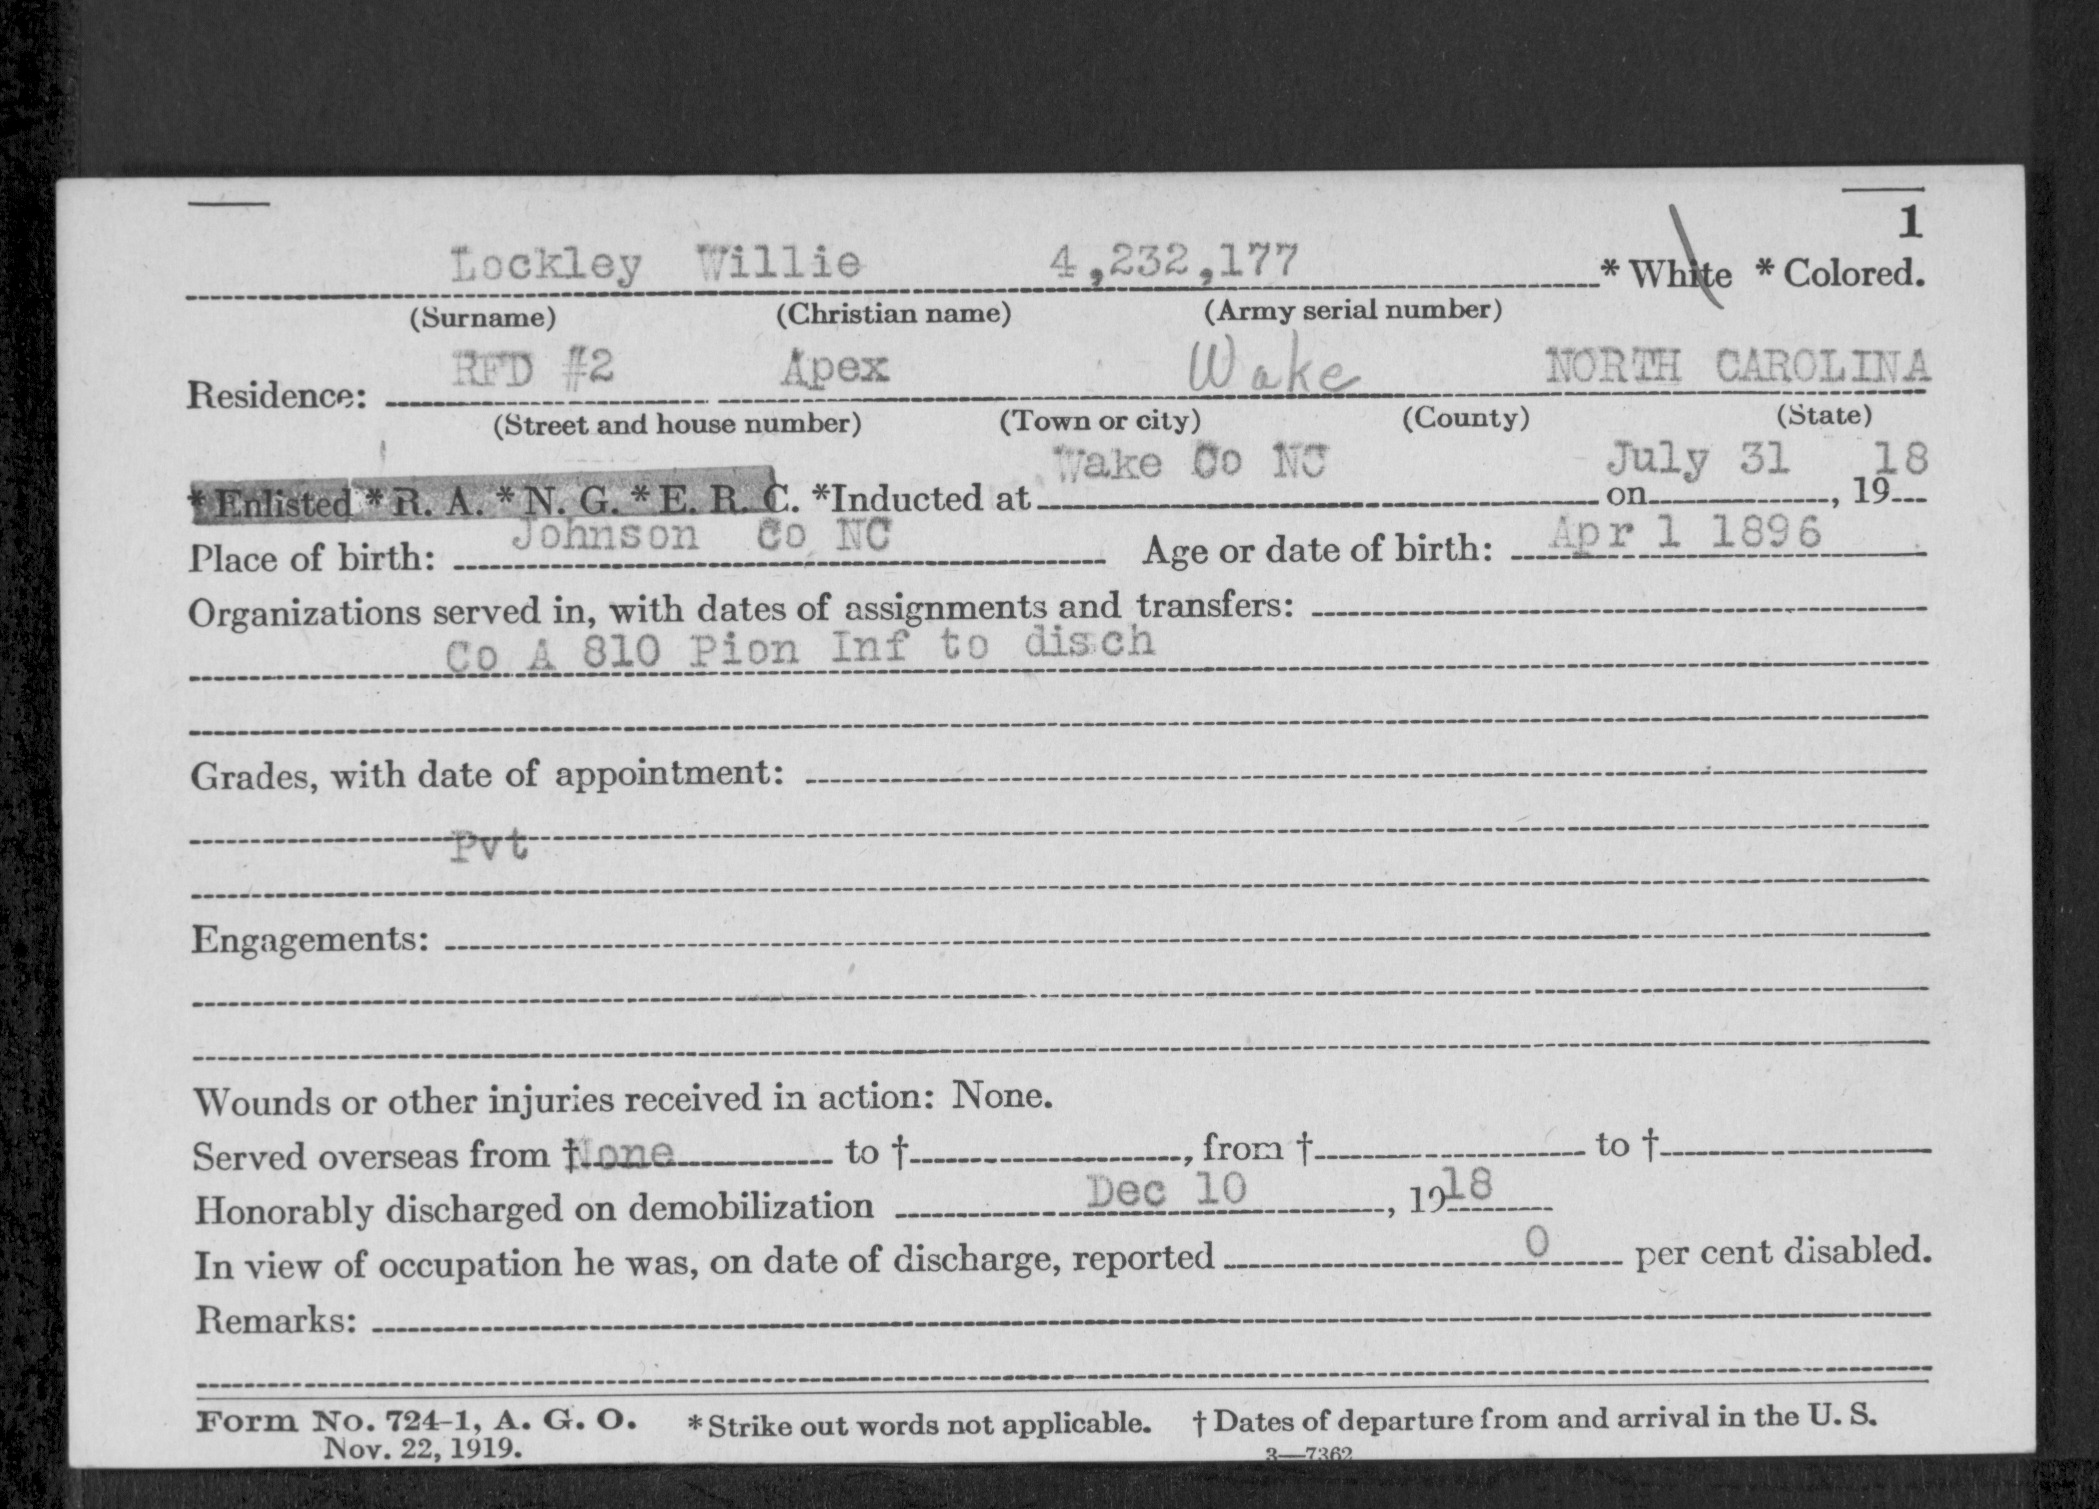 1
Lockley Willie 4,232,177 * White * Colored.
(Surname) (Christian name) (Army serial number)
RFD #2 Apex Wake NORTH CAROLINA
Residence:
(Street and house number) (Town or city) (County) (State)
Wake Co NC July 31 18
* Enlisted * R. A. * N. G. * E. R. C. *Inducted at on , 19
Johnson Co NC Apr 1 1896
Place of birth: Age or date of birth:
Organizations served in, with dates of assignments and transfers:
Co A 810 Pion Inf to disch
Grades, with date of appointment:
Pvt
Engagements:
Wounds or other injuries received in action: None.
Served overseas from † None to † , from † to †
Honorably discharged on demobilization Dec 10 , 1918
In view of occupation he was, on date of discharge, reported 0 per cent disabled.
Remarks:
Form No. 724-1, A. G. O. * Strike out words not applicable. † Dates of departure from and arrival in the U. S.
Nov. 22, 1919. 3—7362